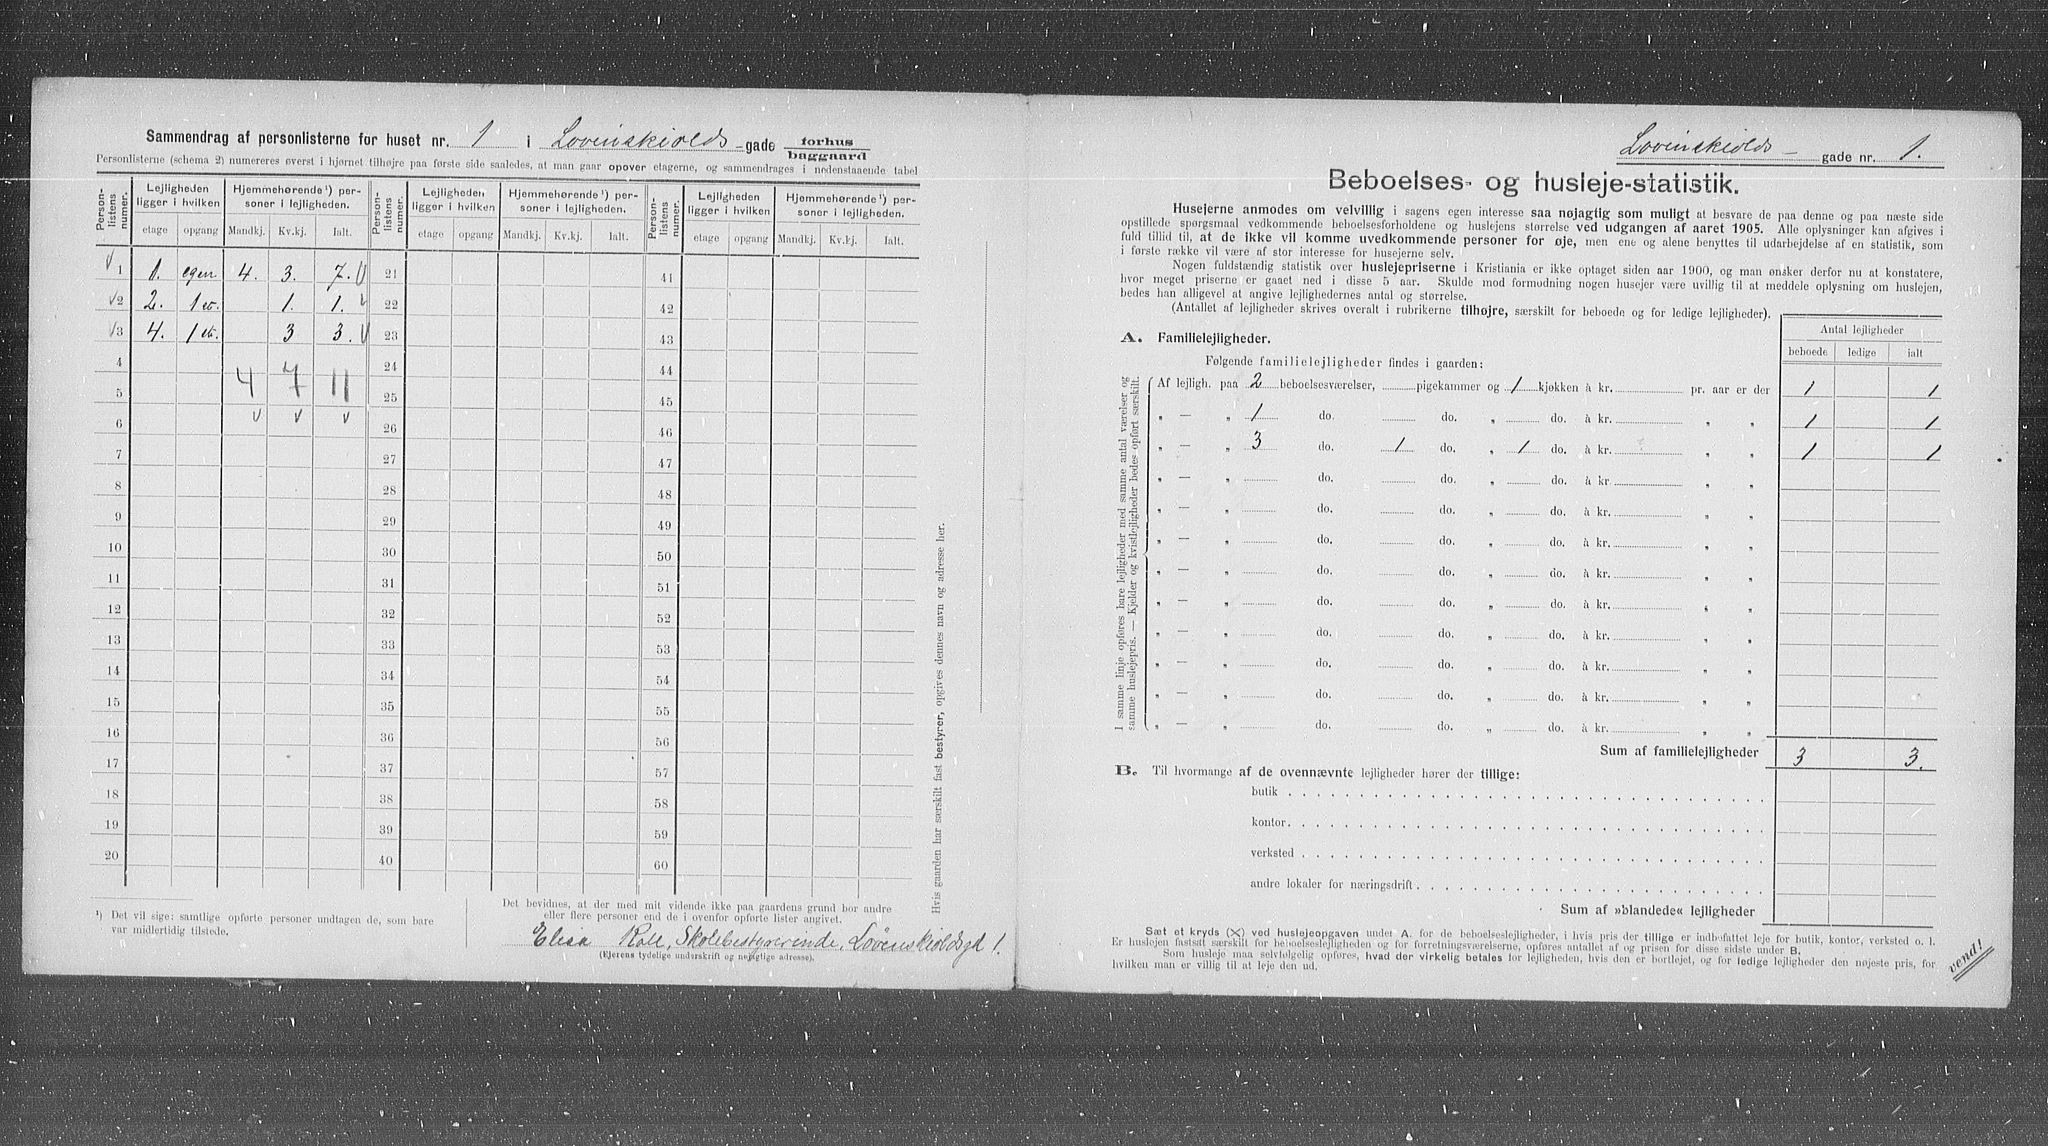 Sammendrag af personlisterne for huset nr. 1 i Lovenskiolds-gade forhus baggaard
Personlisterne (schema 2) numereres øverst i hjørnet tilhøjre paa første side saaledes, at man gaar opover etagerne, og sammendrages i nedenstaaende tabel
Person-listens numer. Lejligheden ligger i hvilken Hjemmehørende¹) personer i lejligheden. Person-listens numer. Lejligheden ligger i hvilken Hjemmehørende¹) personer i lejligheden. Person-listens numer. Lejligheden ligger i hvilken Hjemmehørende¹) personer i lejligheden.
etage opgang Mandkj. Kv.kj. Ialt. etage opgang Mandkj. Kv.kj. Ialt. etage opgang Mandkj. Kv.kj. Ialt.
√ 1 1. egen 4. 3. 7. √ 21 41
√2 2. 1 et. 1. 1. √ 22 42
√3 4. 1 et. 3 3. √ 23 43
4 24 44
4 7 11
5 25 45
√ √ √
6 26 46
7 27 47
8 28 48
9 29 49
10 30 50
11 31 51
12 32 52
13 33 53
14 34 54
15 35 55
16 36 56
17 37 57
18 38 58
19 39 59
20 40 60
¹) Det vil sige: samtlige opførte personer undtagen de, som bare
var midlertidig tilstede.
Det bevidnes, at der med mit vidende ikke paa gaardens grund bor andre
eller flere personer end de i ovenfor opførte lister angivet.
Elisa Roll, Skolebestyrerinde, Løvenskioldsgd 1.
(Ejerens tydelige underskrift og nøjagtige adresse).
Hvis gaarden har særskilt fast bestyrer, opgives dennes navn og adresse her.
Lovenskiolds- gade nr. 1.
Beboelses- og husleje-statistik.
Husejerne anmodes om velvillig i sagens egen interesse saa nøjagtig som muligt at besvare de paa denne og paa næste side
opstillede spørgsmaal vedkommende beboelsesforholdene og huslejens størrelse ved udgangen af aaret 1905. Alle oplysninger kan afgives i
fuld tillid til, at de ikke vil komme uvedkommende personer for øje, men ene og alene benyttes til udarbejdelse af en statistik, som
i første række vil være af stor interesse for husejerne selv.
Nogen fuldstændig statistik over huslejepriserne i Kristiania er ikke optaget siden aar 1900, og man ønsker derfor nu at konstatere,
hvor meget priserne er gaaet ned i disse 5 aar. Skulde mod formodning nogen husejer være uvillig til at meddele oplysning om huslejen,
bedes han alligevel at angive lejlighedernes antal og størrelse.
(Antallet af lejligheder skrives overalt i rubrikerne tilhøjre, særskilt for beboede og for ledige lejligheder).
Antal lejligheder
beboede ledige ialt
A. Familielejligheder.
Følgende familielejligheder findes i gaarden:
I samme linje opføres bare lejligheder med samme antal værelser og
samme huslejepris. — Kjelder og kvistlejligheder bedes opført særskilt.
Af lejligh. paa 2 beboelsesværelser, pigekammer og 1 kjøkken à kr. pr. aar er der 1 1
„ — „ 1 do. do. „ do. à kr. „ „ 1 1
„ — „ 3 do. 1 do. „ 1 do. à kr. „ „ 1 1
„ — „ do. do. „ do. à kr. „ „
„ — „ do. do. „ do. à kr. „ „
„ — „ do. do. „ do. à kr. „ „
„ — „ do. do. „ do. à kr. „ „
„ — „ do. do. „ do. à kr. „ „
„ — „ do. do. „ do. à kr. „ „
„ — „ do. do. „ do. à kr. „ „
„ — „ do. do. „ do. à kr. „ „
„ — „ do. do. „ do. à kr. „ „
Sum af familielejligheder 3 3.
B. Til hvormange af de ovennævnte lejligheder hører der tillige:
butik
kontor
verksted
andre lokaler for næringsdrift
Sum af »blandede« lejligheder
Sæt et kryds (X) ved huslejeopgaven under A. for de beboelseslejligheder, i hvis pris der tillige er indbefattet leje for butik, kontor, verksted o. l.
Er huslejen fastsat særskilt for beboelseslejligheden og for forretningsværelserne, opføres antallet af og prisen for disse sidste under B.
Som husleje maa selvfølgelig opføres, hvad der virkelig betales for lejligheden, hvis den er bortlejet, og for ledige lejligheder den nøjeste pris, for
hvilken man er villig til at leje den ud.
vend!